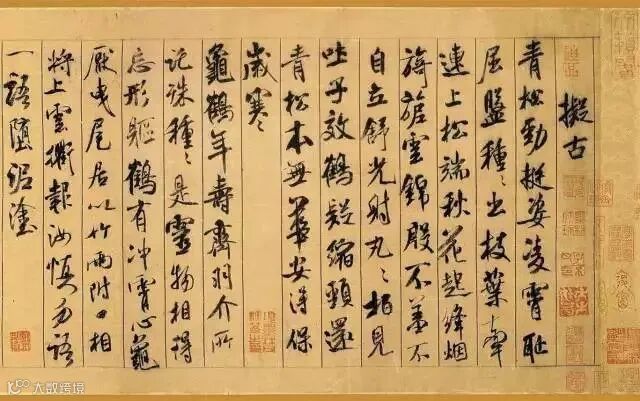 擬古
青松勁挺姿凌霄恥
屈盤種〻出枝葉牽
連上松端秋花起絳烟
旖旎雲錦殷不羞不
自立舒光射丸〻柏見
吐子效鶴疑縮頸還
青松本無華安得保
歲寒
龜鶴年壽齊羽介所
託殊種〻是靈物相得
忘形軀鶴有沖霄心龜
厭曳尾居以竹兩附口相
將上雲衢報汝慎勿語
一語墮泥塗
大数跨境